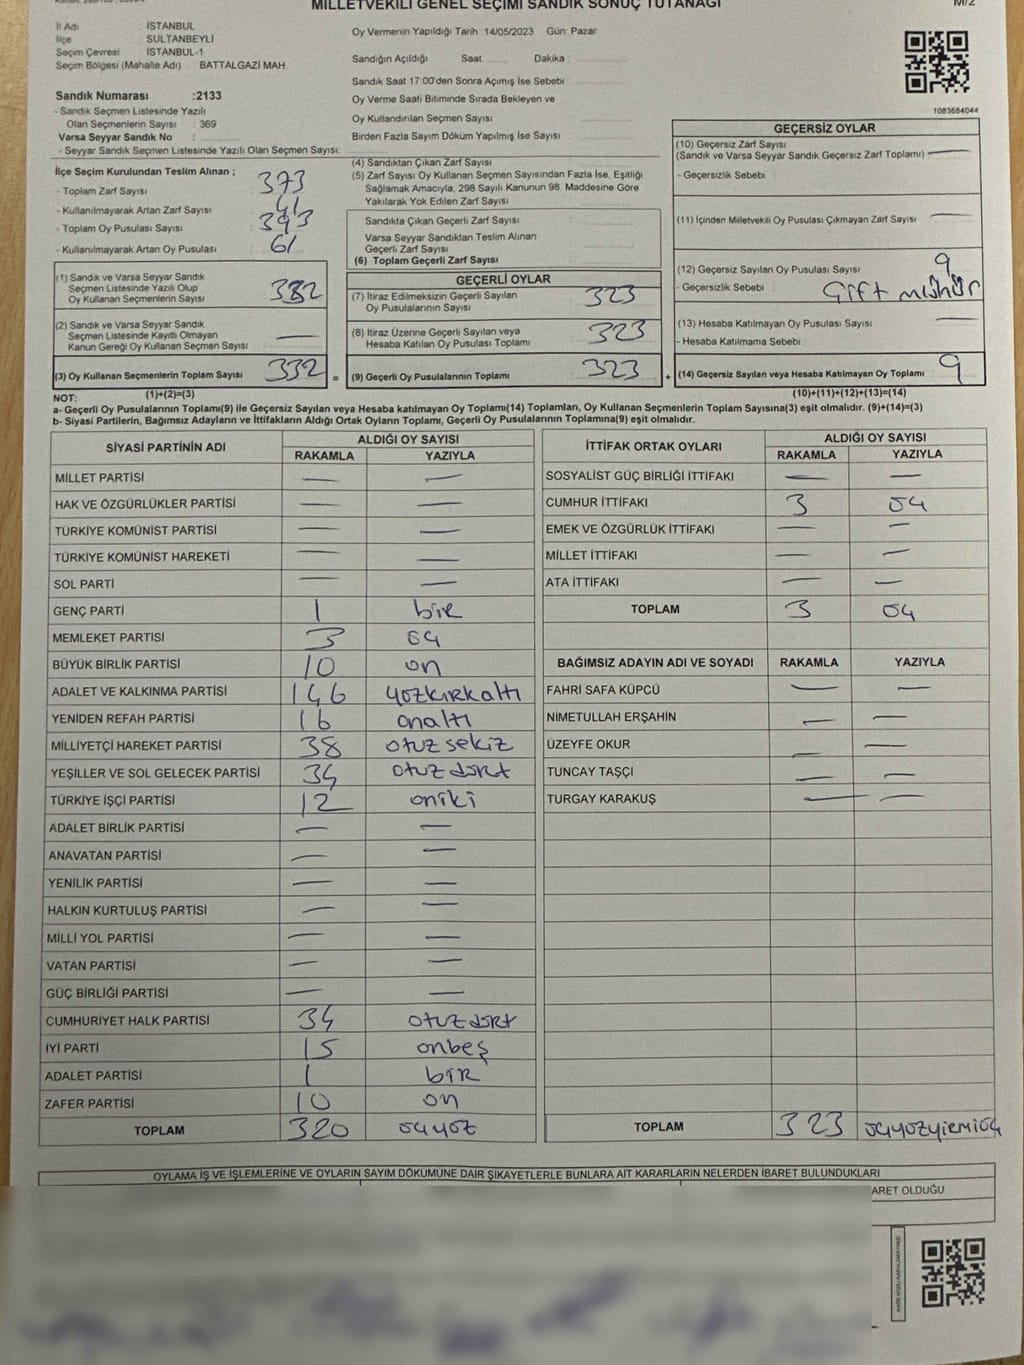 MİLLETVEKİLİ GENEL SEÇİMİ SANDIK SONUÇ TUTANAĞI
M/2
İl Adı İSTANBUL
İlçe SULTANBEYLİ
Seçim Çevresi İSTANBUL-1
Seçim Bölgesi (Mahalle Adı) : BATTALGAZİ MAH.
Sandık Numarası :2133
- Sandık Seçmen Listesinde Yazılı
Olan Seçmenlerin Sayısı : 369
Varsa Seyyar Sandık No :
- Seyyar Sandık Seçmen Listesinde Yazılı Olan Seçmen Sayısı:
Oy Vermenin Yapıldığı Tarih 14/05/2023 Gün: Pazar
Sandığın Açıldığı Saat Dakika
Sandık Saat 17:00'den Sonra Açımış İse Sebebi
Oy Verme Saati Bitiminde Sırada Bekleyen ve
Oy Kullandırılan Seçmen Sayısı
Birden Fazla Sayım Döküm Yapılmış İse Sayısı
1083684044
İlçe Seçim Kurulundan Teslim Alınan ;
- Toplam Zarf Sayısı 373
- Kullanılmayarak Artan Zarf Sayısı 41
- Toplam Oy Pusulası Sayısı 393
- Kullanılmayarak Artan Oy Pusulası 61
(1) Sandık ve Varsa Seyyar Sandık
Seçmen Listesinde Yazılı Olup
Oy Kullanan Seçmenlerin Sayısı 332
(2) Sandık ve Varsa Seyyar Sandık
Seçmen Listesinde Kayıtlı Olmayan
Kanun Gereği Oy Kullanan Seçmen Sayısı —
(3) Oy Kullanan Seçmenlerin Toplam Sayısı 332 =
(4) Sandıktan Çıkan Zarf Sayısı
(5) Zarf Sayısı Oy Kullanan Seçmen Sayısından Fazla İse, Eşitliği
Sağlamak Amacıyla, 298 Sayılı Kanunun 98. Maddesine Göre
Yakılarak Yok Edilen Zarf Sayısı
Sandıkta Çıkan Geçerli Zarf Sayısı
Varsa Seyyar Sandıktan Teslim Alınan
Geçerli Zarf Sayısı
(6) Toplam Geçerli Zarf Sayısı
GEÇERLİ OYLAR
(7) İtiraz Edilmeksizin Geçerli Sayılan
Oy Pusulalarının Sayısı 323
(8) İtiraz Üzerine Geçerli Sayılan veya
Hesaba Katılan Oy Pusulası Toplamı 323
(9) Geçerli Oy Pusulalarının Toplamı 323 +
GEÇERSİZ OYLAR
(10) Geçersiz Zarf Sayısı
(Sandık ve Varsa Seyyar Sandık Geçersiz Zarf Toplamı) —
- Geçersizlik Sebebi :
(11) İçinden Milletvekili Oy Pusulası Çıkmayan Zarf Sayısı —
(12) Geçersiz Sayılan Oy Pusulası Sayısı 9
- Geçersizlik Sebebi : Çift mühür
(13) Hesaba Katılmayan Oy Pusulası Sayısı —
- Hesaba Katılmama Sebebi
(14) Geçersiz Sayılan veya Hesaba Katılmayan Oy Toplamı 9
NOT: (1)+(2)=(3) (10)+(11)+(12)+(13)=(14)
a- Geçerli Oy Pusulalarının Toplamı(9) ile Geçersiz Sayılan veya Hesaba katılmayan Oy Toplamı(14) Toplamları, Oy Kullanan Seçmenlerin Toplam Sayısına(3) eşit olmalıdır. (9)+(14)=(3)
b- Siyasi Partilerin, Bağımsız Adayların ve İttifakların Aldığı Ortak Oyların Toplamı, Geçerli Oy Pusulalarının Toplamına(9) eşit olmalıdır.
SİYASİ PARTİNİN ADI ALDIĞI OY SAYISI
RAKAMLA YAZIYLA
MİLLET PARTİSİ — —
HAK VE ÖZGÜRLÜKLER PARTİSİ — —
TÜRKİYE KOMÜNİST PARTİSİ — —
TÜRKİYE KOMÜNİST HAREKETİ — —
SOL PARTİ — —
GENÇ PARTİ 1 bir
MEMLEKET PARTİSİ 3 üç
BÜYÜK BİRLİK PARTİSİ 10 on
ADALET VE KALKINMA PARTİSİ 146 yüzkırkaltı
YENİDEN REFAH PARTİSİ 16 onaltı
MİLLİYETÇİ HAREKET PARTİSİ 38 otuz sekiz
YEŞİLLER VE SOL GELECEK PARTİSİ 34 otuz dört
TÜRKİYE İŞÇİ PARTİSİ 12 oniki
ADALET BİRLİK PARTİSİ — —
ANAVATAN PARTİSİ — —
YENİLİK PARTİSİ — —
HALKIN KURTULUŞ PARTİSİ — —
MİLLİ YOL PARTİSİ — —
VATAN PARTİSİ — —
GÜÇ BİRLİĞİ PARTİSİ — —
CUMHURİYET HALK PARTİSİ 34 otuz dört
İYİ PARTİ 15 onbeş
ADALET PARTİSİ 1 bir
ZAFER PARTİSİ 10 on
TOPLAM 320 üçyüz
İTTİFAK ORTAK OYLARI ALDIĞI OY SAYISI
RAKAMLA YAZIYLA
SOSYALİST GÜÇ BİRLİĞİ İTTİFAKI — —
CUMHUR İTTİFAKI 3 üç
EMEK VE ÖZGÜRLÜK İTTİFAKI — —
MİLLET İTTİFAKI — —
ATA İTTİFAKI — —
TOPLAM 3 üç
BAĞIMSIZ ADAYIN ADI VE SOYADI RAKAMLA YAZIYLA
FAHRİ SAFA KÜPCÜ — —
NİMETULLAH ERŞAHİN — —
ÜZEYFE OKUR — —
TUNCAY TAŞÇI — —
TURGAY KARAKUŞ — —
TOPLAM 323 üçyüzyirmiüç
OYLAMA İŞ VE İŞLEMLERİNE VE OYLARIN SAYIM DÖKÜMÜNE DAİR ŞİKAYETLERLE BUNLARA AİT KARARLARIN NELERDEN İBARET BULUNDUKLARI
ARET OLDUĞU